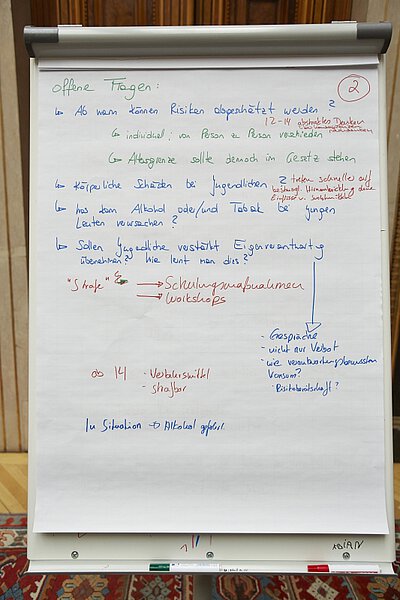 offene Fragen:
2
↳ Ab wann können Risiken abgeschätzt werden?
12-14 abstraktes Denken
↳ individuell; von Person zu Person verschieden
↳ Altersgrenze sollte dennoch im Gesetz stehen
↳ Körperliche Schäden bei Jugendlichen?
treten schneller auf
↳ was kann Alkohol oder/und Tabak bei jungen
Leuten verursachen?
↳ Sollen Jugendliche verstärkt Eigenverantwortung
übernehmen? Wie lernt man dies?
"Strafe" → Schulungsmaßnahmen
→ Workshops
- Gespräche
- nicht nur Verbot
- wie verantwortungsbewussten
Konsum?
- Risikobereitschaft?
ab 14 - Verkehrsmittel
- strafbar
In Situation → Alkohol gefährl.